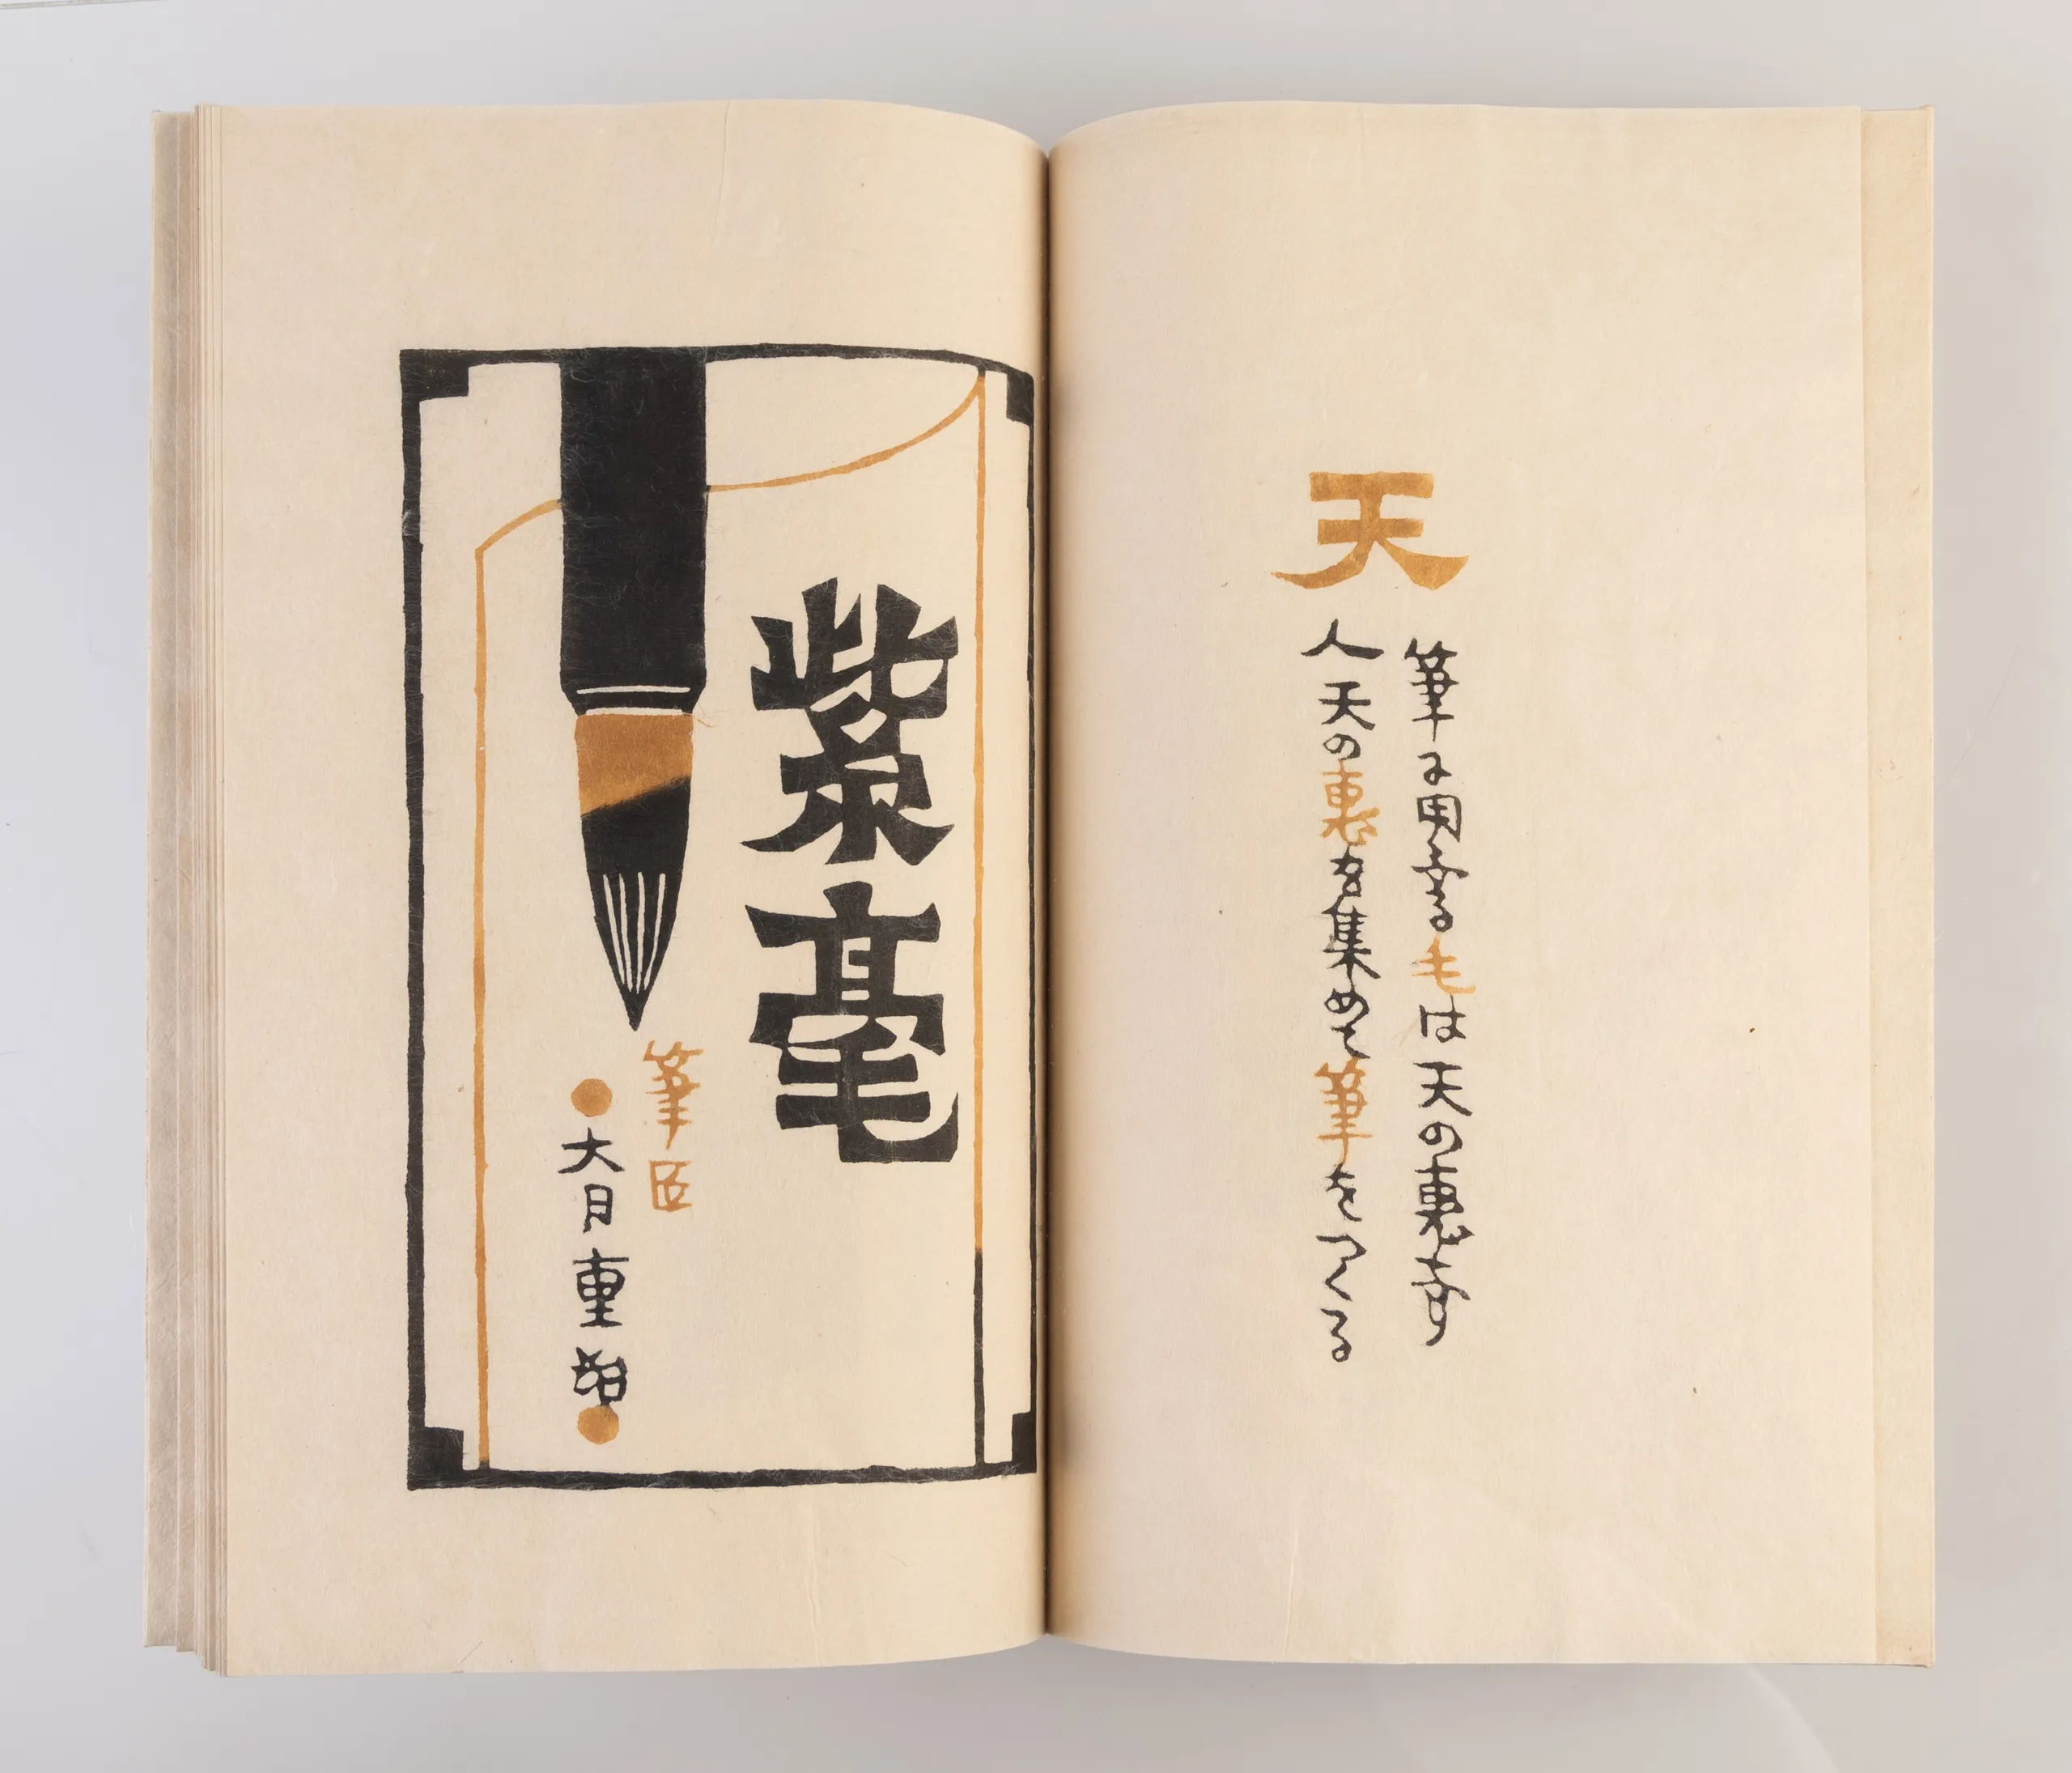 天
筆に用ゐる毛は天の惠なり
人天の惠を集めて筆をつくる
紫毫
筆匠
大月重